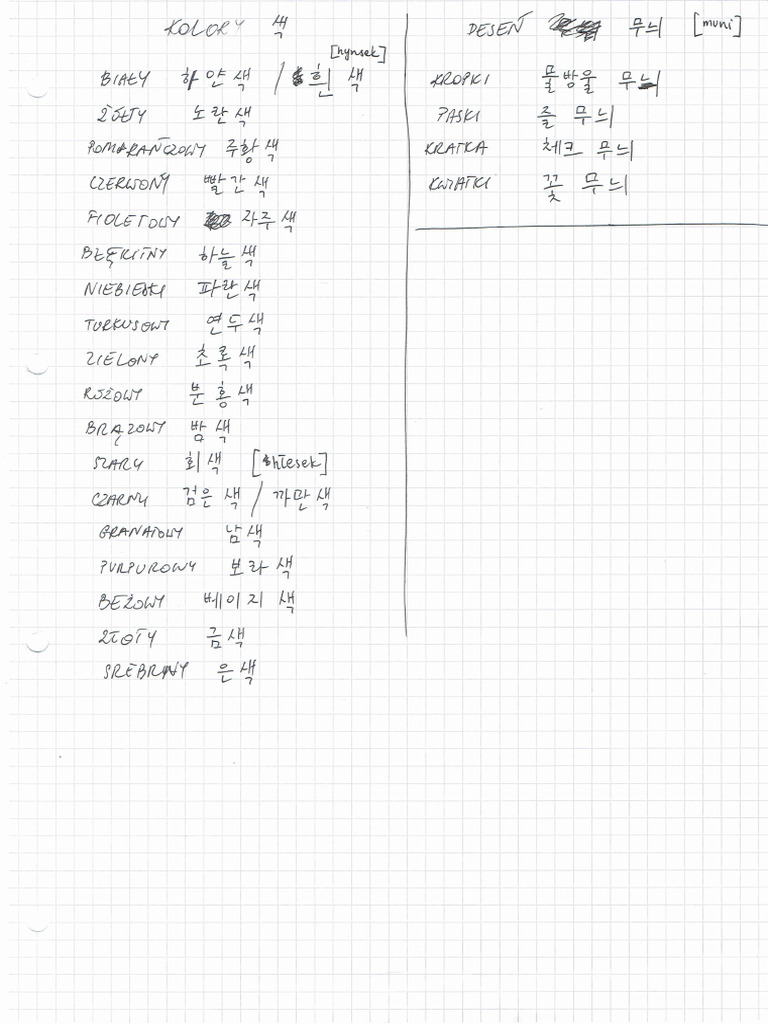 KOLORY 색
[hynsek]
BIAŁY 하얀색 / 흰 색
ŻÓŁTY 노란색
POMARAŃCZOWY 주황색
CZERWONY 빨간색
FIOLETOWY 자주색
BŁĘKITNY 하늘색
NIEBIESKI 파란색
TURKUSOWY 연두색
ZIELONY 초록색
RÓŻOWY 분홍색
BRĄZOWY 밤색
SZARY 회색 [hłesek]
CZARNY 검은색 / 까만색
GRANATOWY 남색
PURPUROWY 보라색
BEŻOWY 베이지 색
ZŁOTY 금색
SREBRNY 은색
DESEŃ 무늬 [muni]
KROPKI 물방울 무늬
PASKI 줄 무늬
KRATKA 체크 무늬
KWIATKI 꽃 무늬